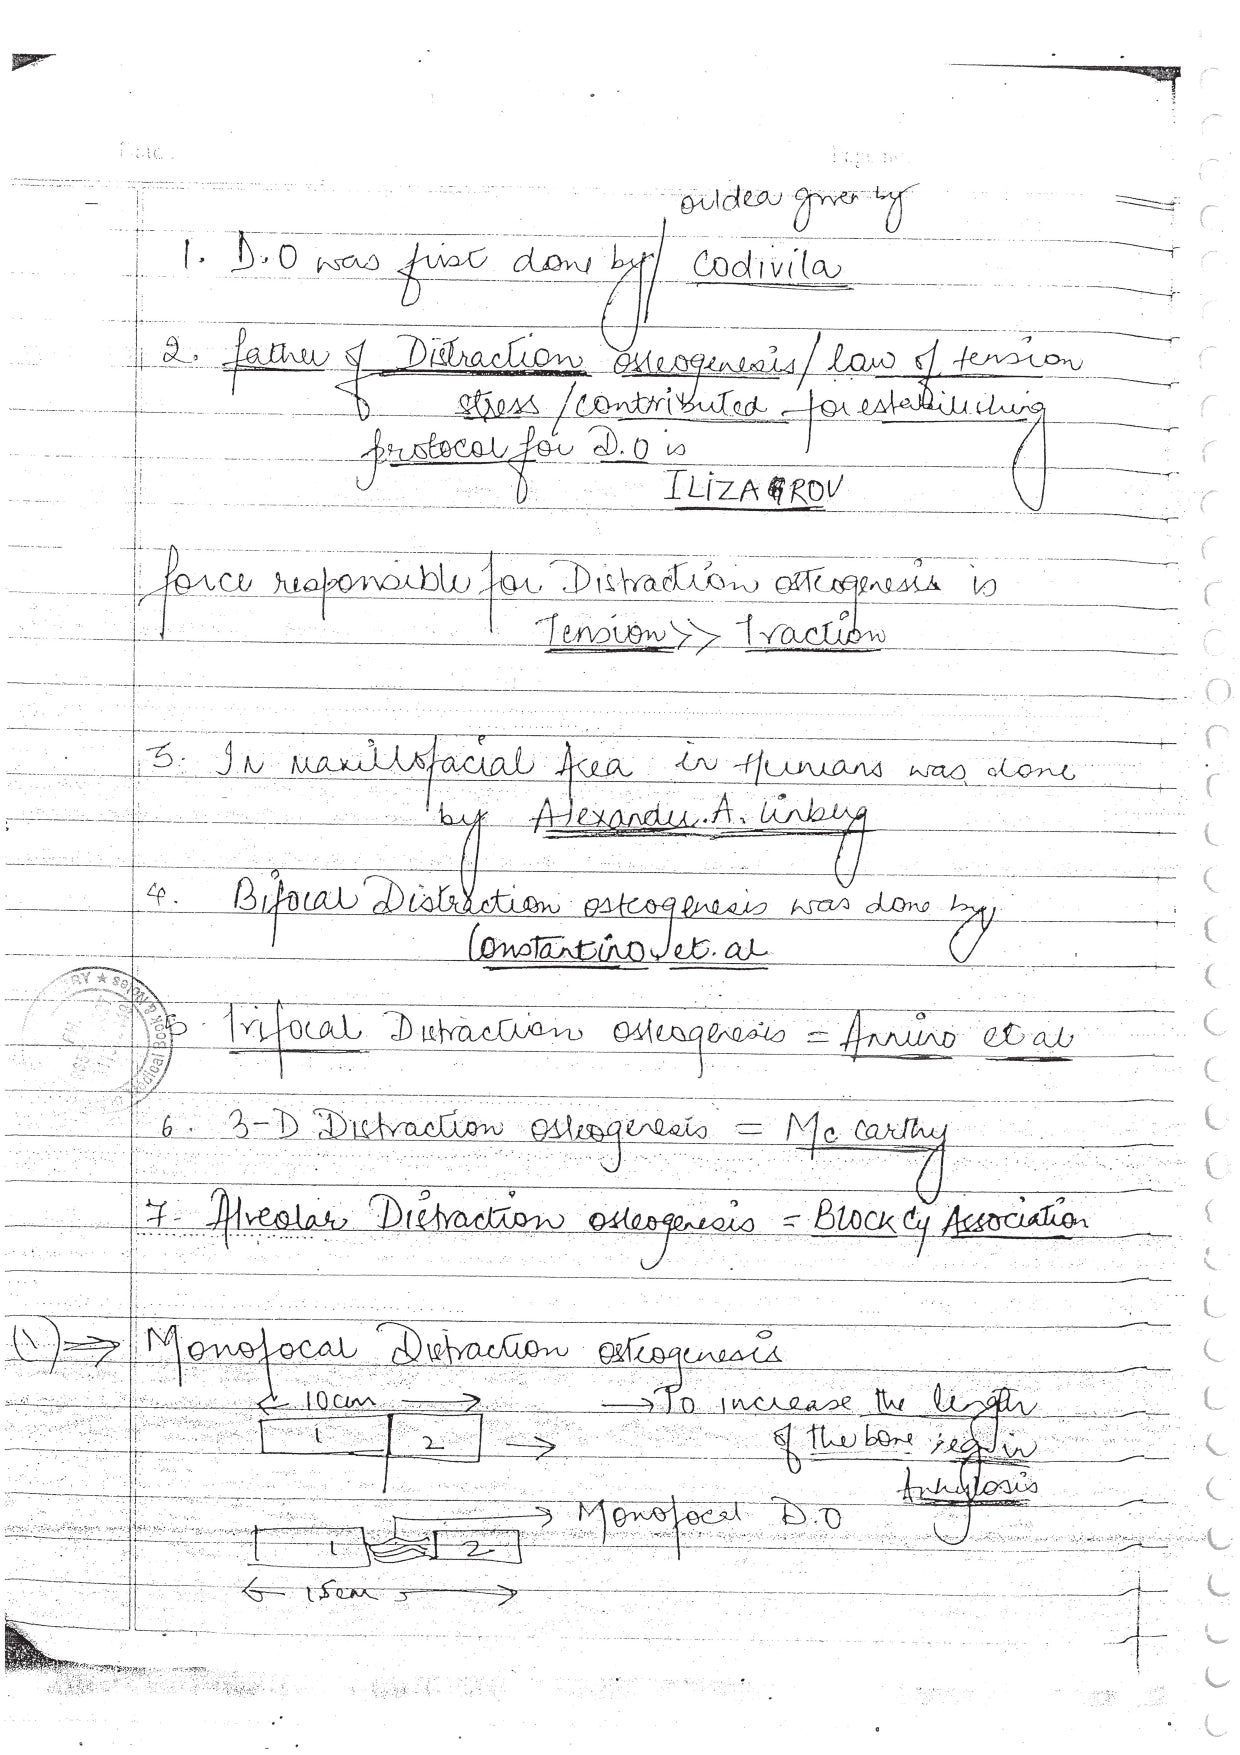 Date.
Page no.
or idea given by
1. D.O was first done by / Codivila
2. father of Distraction osteogenesis / law of tension
stress / contributed for establishing
protocal for D.O is
ILIZAGROV
force responsible for Distraction osteogenesis is
Tension >> Traction
3. In Maxillofacial Area in Humans was done
by Alexander. A. Linberg
4. Bifocal Distraction osteogenesis was done by
Constantino et. al
5. Trifocal Distraction osteogenesis = Annino et al
6. 3-D Distraction osteogenesis = Mc Carthy
7. Alveolar Distraction osteogenesis = Block Cy Association
(1) ⇒ Monofocal Distraction osteogenesis
← 10cm →
→ To increase the length
1 2 →
of the bone; eg in
Ankylosis
→ Monofocal D.O
1 2
← 15cm →